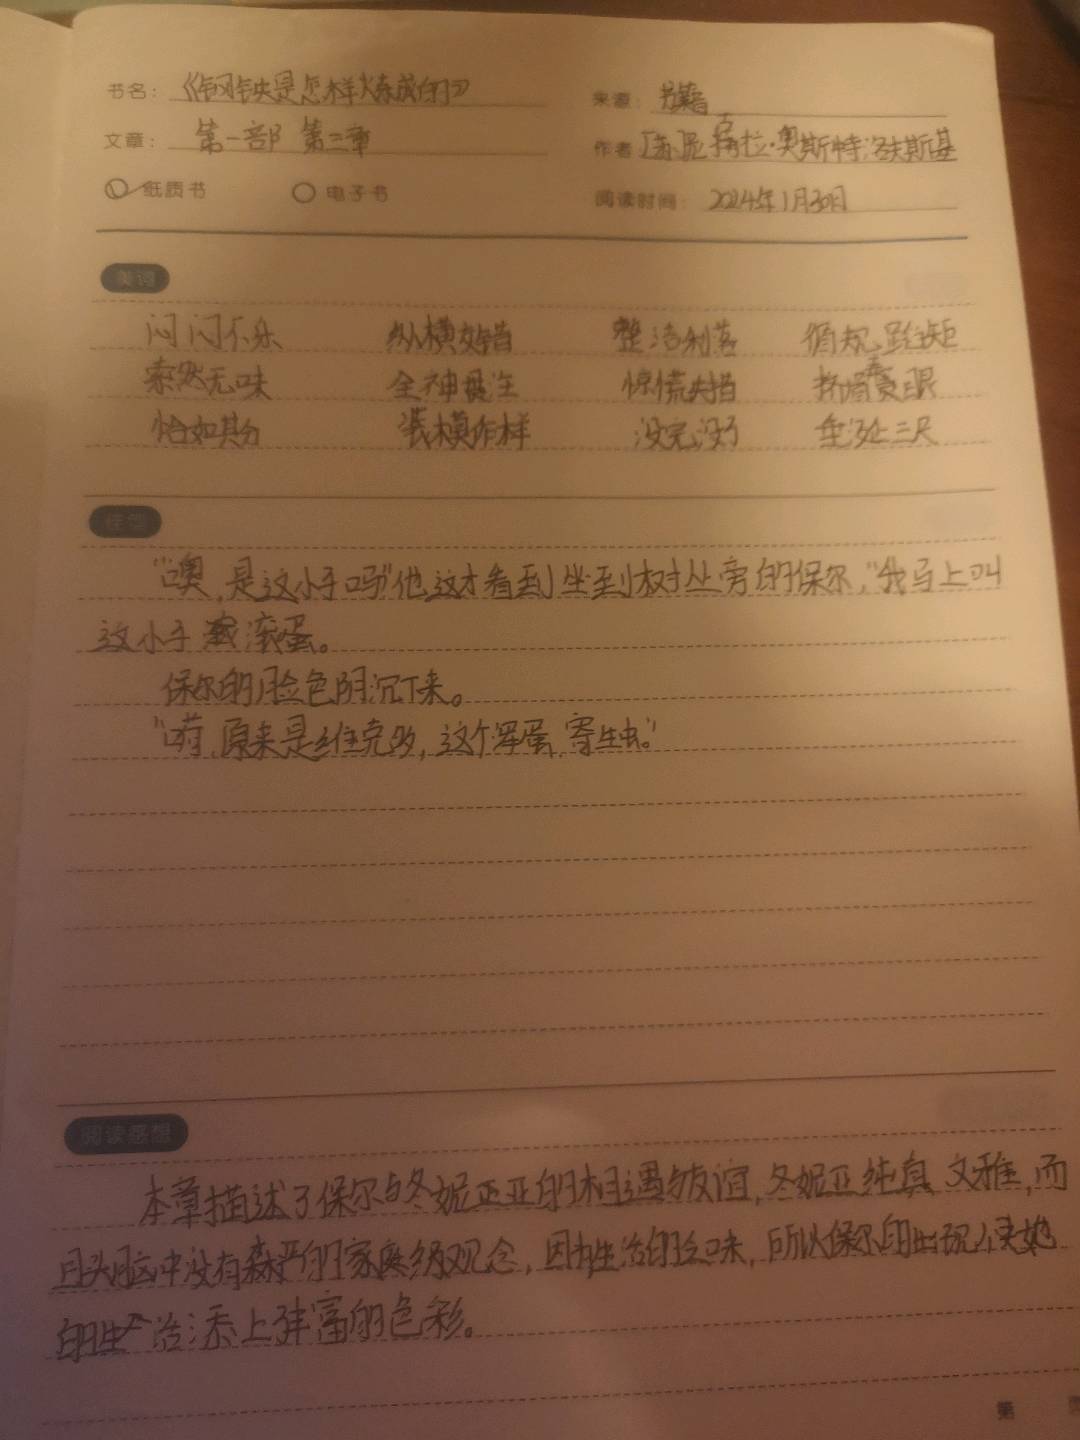 书名：《钢铁是怎样炼成的》
来源：书籍
文章：第一部 第三章
作者 [苏]尼古拉·奥斯特洛夫斯基
纸质书 电子书
阅读时间：2024年1月30日
美词
闷闷不乐 纵横交错 整洁利落 循规蹈矩
索然无味 全神贯注 惊慌失措 挤眉弄眼
恰如其分 装模作样 没完没了 垂涎三尺
佳句
“噢，是这小子吗”他这才看到坐到树丛旁的保尔，“我马上叫
这小子滚蛋。
保尔的脸色阴沉下来。
“喏，原来是维克多，这个浑蛋，寄生虫。”
阅读感想
本章描述了保尔与冬妮亚的相遇与友谊，冬妮亚纯真、文雅，而
且头脑中没有森严的家庭级观念，因为生活的乏味，所以保尔的出现会使她
的生活添上丰富的色彩。
第